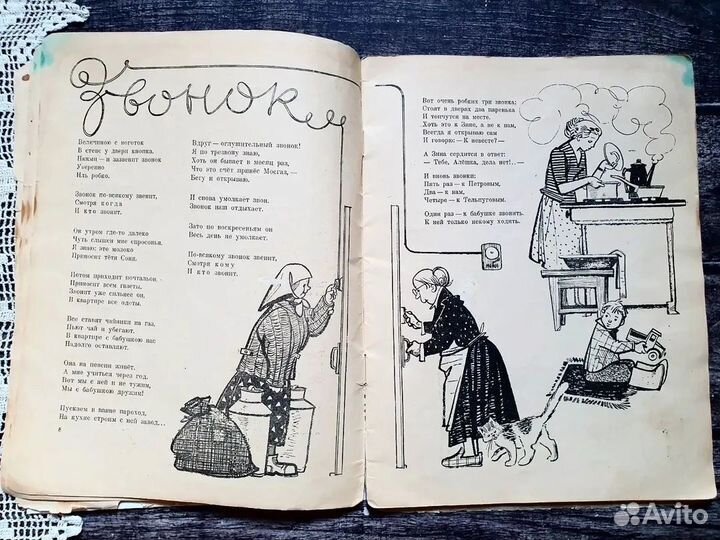 Звонок
Величиною с ноготок
В стене у двери кнопка.
Нажми — и зазвенит звонок
Уверенно
Иль робко.
Звонок по-всякому звенит,
Смотря когда
И кто звонит.
Он утром где-то далеко
Чуть слышен мне спросонья.
Я знаю: это молоко
Приносит тётя Соня.
Потом приходит почтальон.
Приносит всем газеты.
Звонит уже сильнее он,
В квартире все одеты.
Все ставят чайники на газ,
Пьют чай и убегают.
В квартире с бабушкою нас
Надолго оставляют.
Она на пенсии живёт,
А мне учиться через год.
Вот мы с ней и не тужим,
Мы с бабушкою дружим!
Пускаем в ванне пароход,
На кухне строим с ней завод...
8
Вдруг — оглушительный звонок!
Я по трезвону знаю,
Хоть он бывает в месяц раз,
Что это счёт принёс Мосгаз,—
Бегу и открываю.
И снова умолкает звон.
Звонок наш отдыхает.
Зато по воскресеньям он
Весь день не умолкает.
По-всякому звонок звенит,
Смотря кому
И кто звонит.
Вот очень робких три звонка:
Стоят в дверях два паренька
И топчутся на месте.
Хоть это к Зине, а не к нам,
Всегда я открываю сам
И говорю: — К невесте? —
А Зина сердится в ответ:
— Тебе, Алёшка, дела нет!.. —
И вновь звонки:
Пять раз — к Петровым,
Два — к нам,
Четыре — к Тельпуговым.
Один раз — к бабушке звонить.
К ней только некому ходить.
Avito